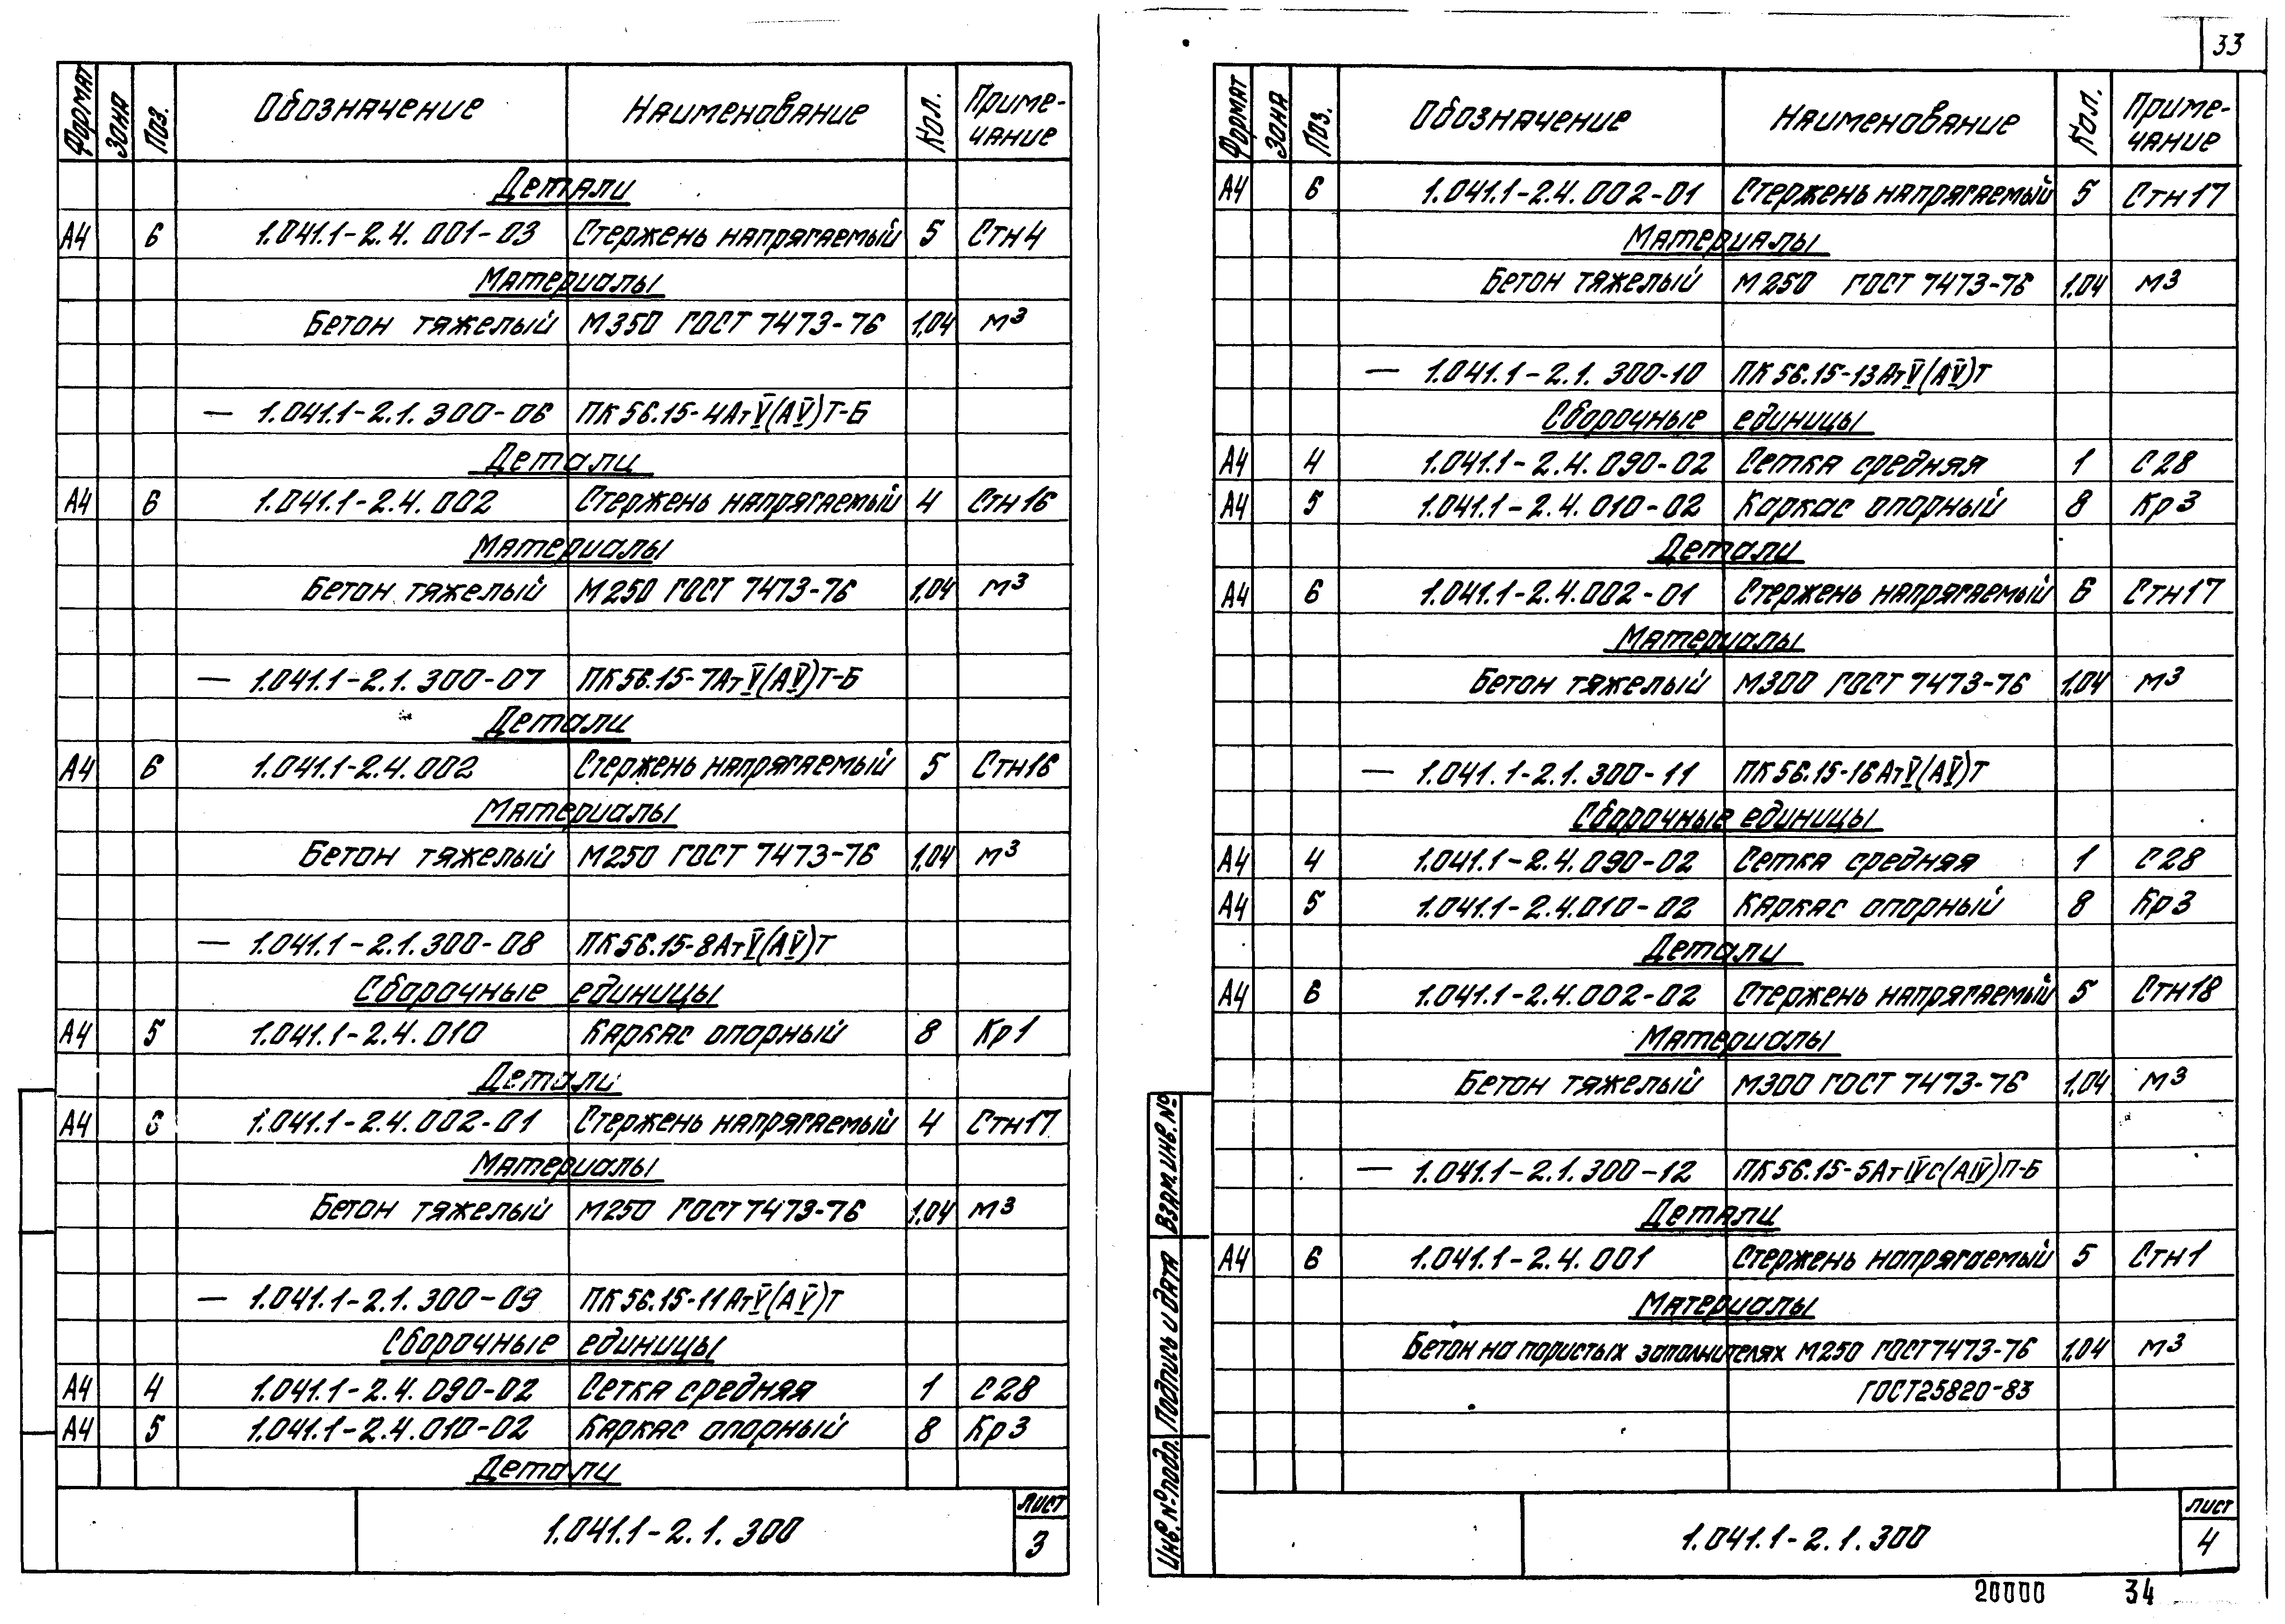 Формат Зона Поз. Обозначение Наименование Кол. Приме-
чание
Детали
А4 6 1.041.1-2.4.001-03 Стержень напрягаемый 5 Стн4
Материалы
Бетон тяжелый М350 ГОСТ 7473-76 1,04 м3
— 1.041.1-2.1.300-06 ПК56.15-4АтV(АV)Т-Б
Детали
А4 6 1.041.1-2.4.002 Стержень напрягаемый 4 Стн16
Материалы
Бетон тяжелый М250 ГОСТ 7473-76 1,04 м3
— 1.041.1-2.1.300-07 ПК56.15-7АтV(АV)Т-Б
Детали
А4 6 1.041.1-2.4.002 Стержень напрягаемый 5 Стн16
Материалы
Бетон тяжелый М250 ГОСТ 7473-76 1,04 м3
— 1.041.1-2.1.300-08 ПК56.15-8АтV(АV)Т
Сборочные единицы
А4 5 1.041.1-2.4.010 Каркас опорный 8 Кр1
Детали
А4 6 1.041.1-2.4.002-01 Стержень напрягаемый 4 Стн17
Материалы
Бетон тяжелый М250 ГОСТ 7473-76 1,04 м3
— 1.041.1-2.1.300-09 ПК56.15-11АтV(АV)Т
Сборочные единицы
А4 4 1.041.1-2.4.090-02 Сетка средняя 1 С28
А4 5 1.041.1-2.4.010-02 Каркас опорный 8 Кр3
Детали
1.041.1-2.1.300
Лист
3
33
Формат Зона Поз. Обозначение Наименование Кол. Приме-
чание
А4 6 1.041.1-2.4.002-01 Стержень напрягаемый 5 Стн17
Материалы
Бетон тяжелый М250 ГОСТ 7473-76 1,04 м3
— 1.041.1-2.1.300-10 ПК56.15-13АтV(АV)Т
Сборочные единицы
А4 4 1.041.1-2.4.090-02 Сетка средняя 1 С28
А4 5 1.041.1-2.4.010-02 Каркас опорный 8 Кр3
Детали
А4 6 1.041.1-2.4.002-01 Стержень напрягаемый 6 Стн17
Материалы
Бетон тяжелый М300 ГОСТ 7473-76 1,04 м3
— 1.041.1-2.1.300-11 ПК56.15-16АтV(АV)Т
Сборочные единицы
А4 4 1.041.1-2.4.090-02 Сетка средняя 1 С28
А4 5 1.041.1-2.4.010-02 Каркас опорный 8 Кр3
Детали
А4 6 1.041.1-2.4.002-02 Стержень напрягаемый 5 Стн18
Материалы
Бетон тяжелый М300 ГОСТ 7473-76 1,04 м3
— 1.041.1-2.1.300-12 ПК56.15-5АтIVС(АIV)П-Б
Детали
А4 6 1.041.1-2.4.001 Стержень напрягаемый 5 Стн1
Материалы
Бетон на пористых заполнителях М250 ГОСТ7473-76 1,04 м3
ГОСТ25820-83
Инв.№подл. Подпись и дата Взам.инв.№
1.041.1-2.1.300
Лист
4
20000 34